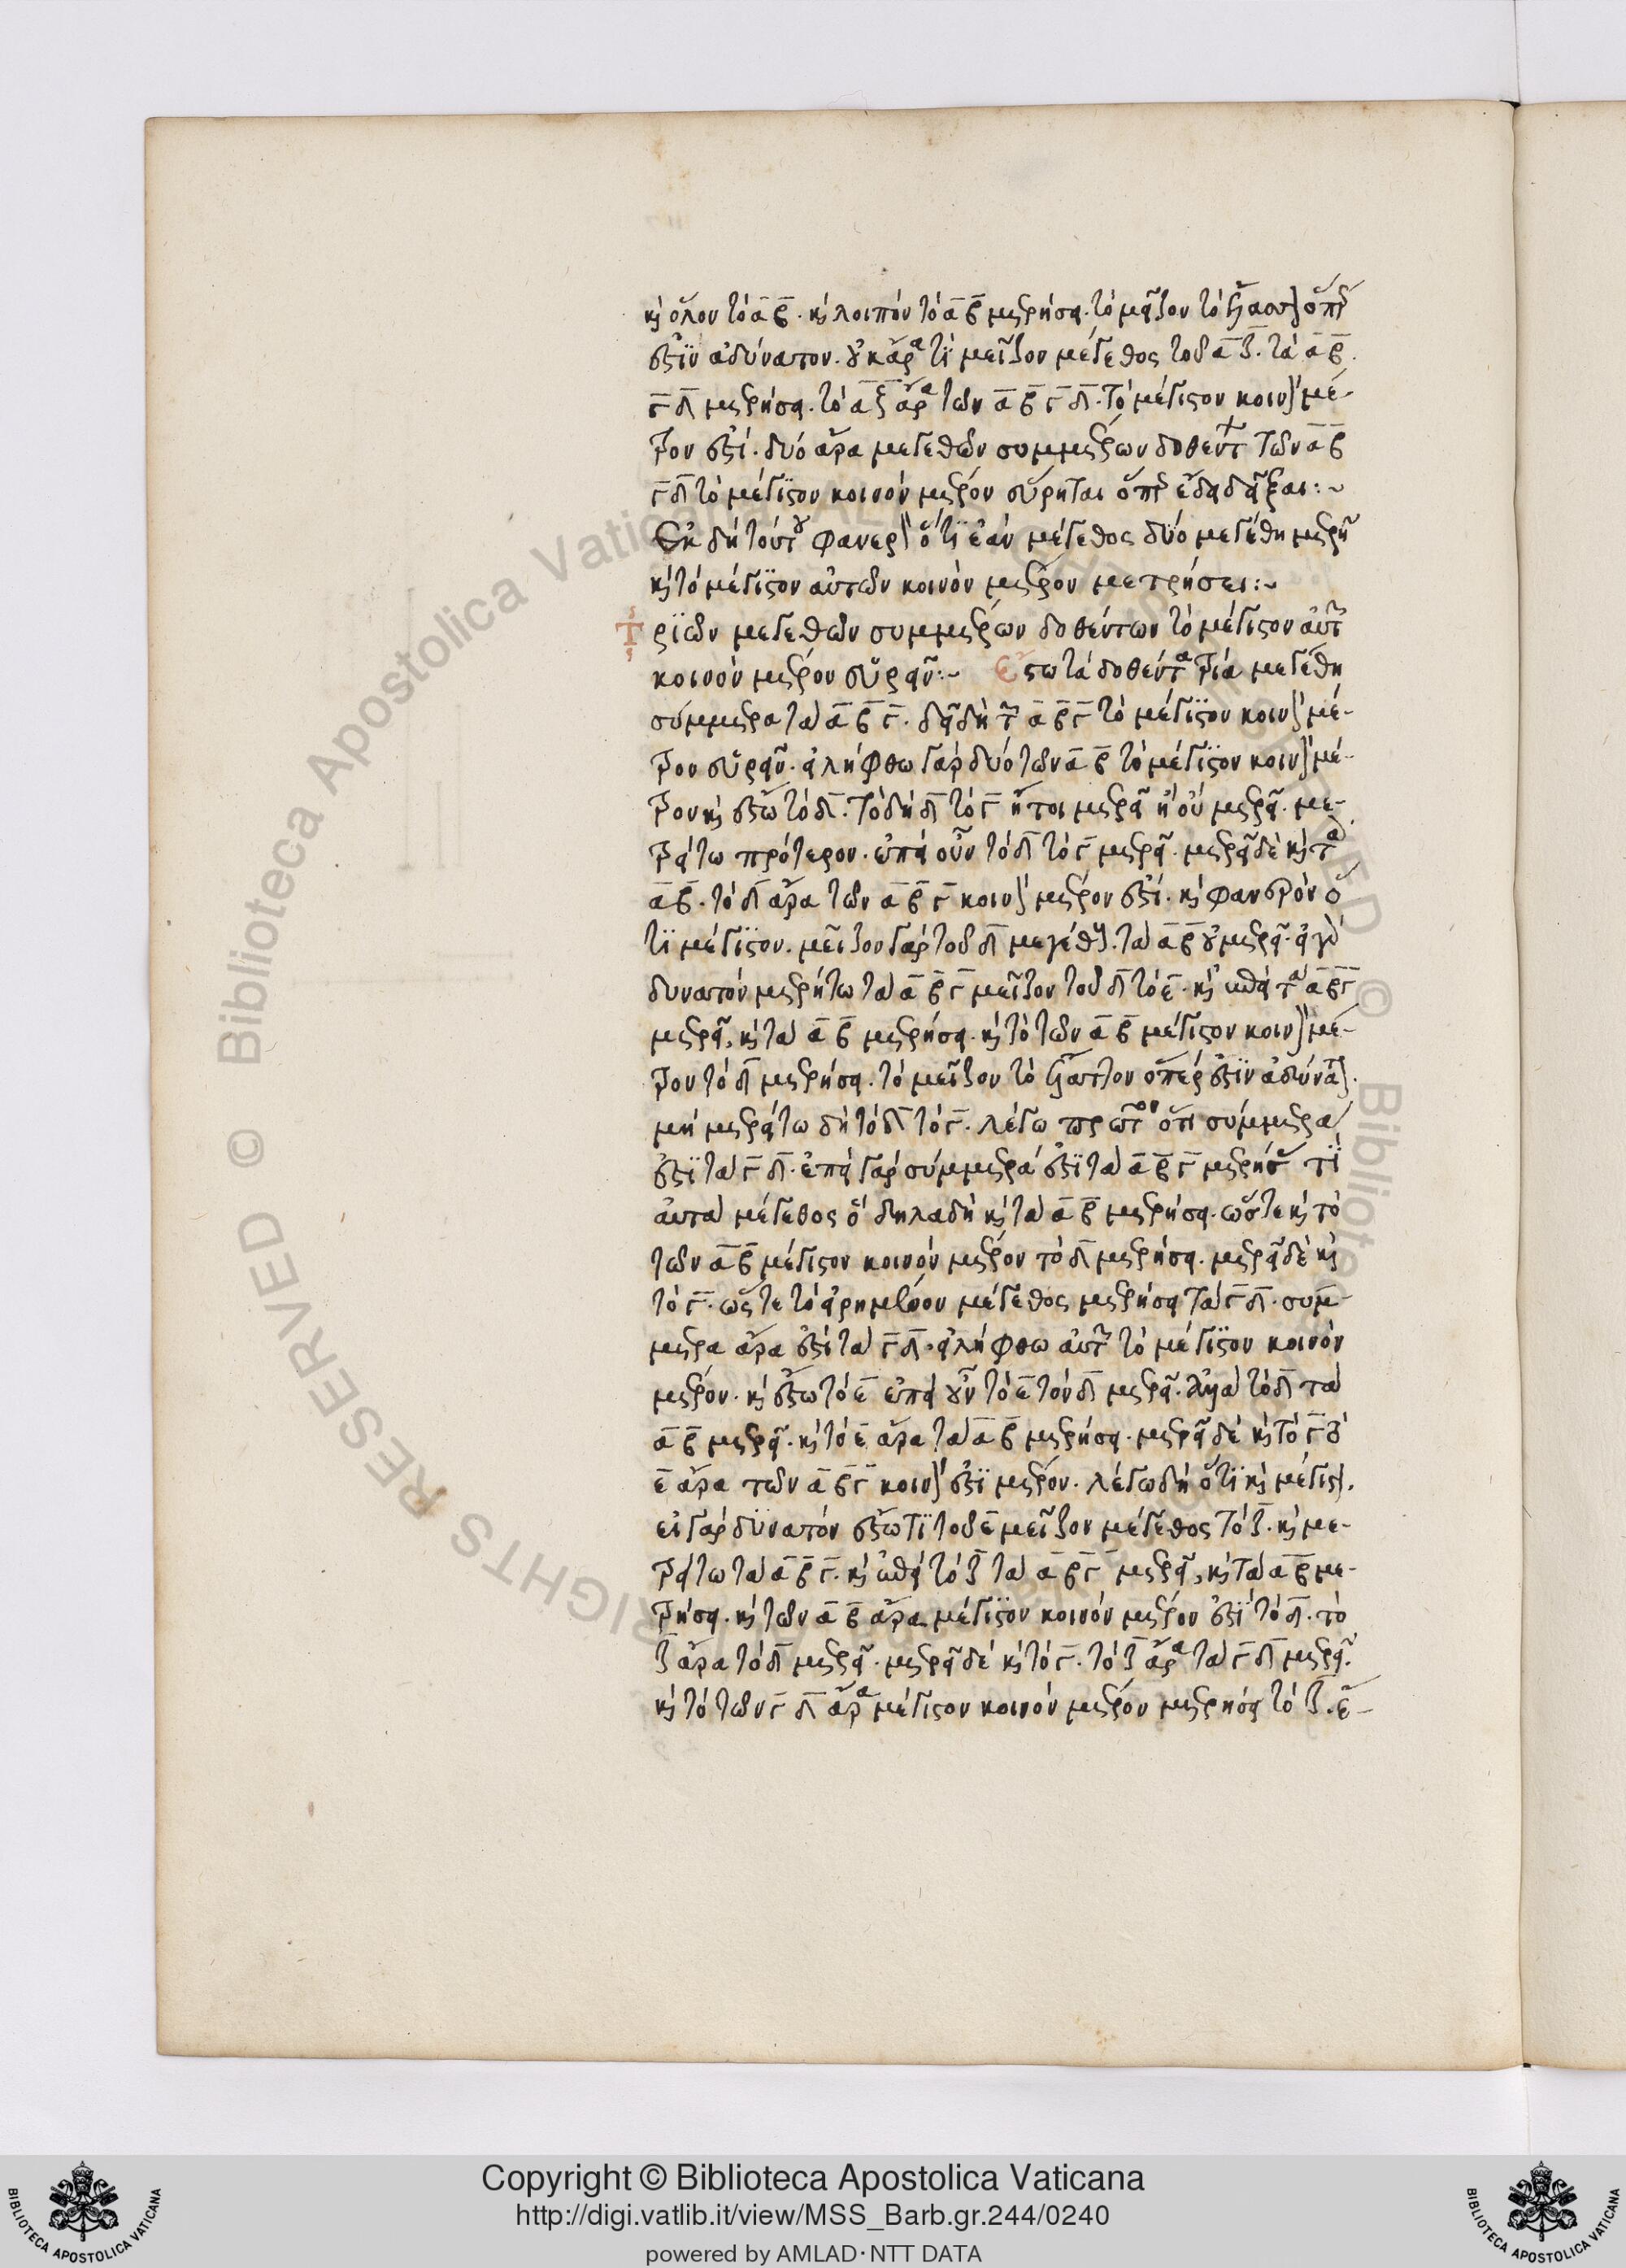 καὶ ὅλον τὸ α̅β̅. καὶ λοιπὸν τὸ α̅β̅ μετρήσει. τὸ μεῖζον τὸ ἔλασσον ὅπερ
ἐστὶν ἀδύνατον. οὐκ ἄρα τὶ μεῖζον μέγεθος τοῦ α̅ζ̅. τὰ α̅β̅.
γ̅δ̅ μετρήσει. τὸ α̅ζ̅ ἄρα τῶν α̅β̅ γ̅δ̅. τὸ μέγιστον κοινὸν μέ-
τρον ἐστί. δύο ἄρα μεγεθῶν συμμέτρων δοθέντων τῶν α̅β̅
γ̅δ̅ τὸ μέγιστον κοινὸν μέτρον εὕρηται ὅπερ ἔδει δεῖξαι:~
Ἐκ δὴ τούτου φανερὸν ὅτι ἐὰν μέγεθος δύο μεγέθη μετρῇ
καὶ τὸ μέγιστον αὐτῶν κοινὸν μέτρον μετρήσει:~
Τριῶν μεγεθῶν συμμέτρων δοθέντων τὸ μέγιστον αὐτῶν
κοινὸν μέτρον εὑρεῖν:~ Ἔστω τὰ δοθέντα τρία μεγέθη
σύμμετρα τὰ α̅ β̅ γ̅. δεῖ δὴ τῶν α̅ β̅ γ̅ τὸ μέγιστον κοινὸν μέ-
τρον εὑρεῖν. εἰλήφθω γὰρ δύο τῶν α̅ β̅ τὸ μέγιστον κοινὸν μέ-
τρον καὶ ἔστω τὸ δ̅. τὸ δὴ δ̅ τὸ γ̅ ἤτοι μετρεῖ ἢ οὐ μετρεῖ. με-
τρείτω πρότερον. ἐπεὶ οὖν τὸ δ̅ τὸ γ̅ μετρεῖ. μετρεῖ δὲ καὶ τὰ
α̅ β̅. τὸ δ̅ ἄρα τῶν α̅ β̅ γ̅ κοινὸν μέτρον ἐστί. καὶ φανερὸν ὅ
τι μέγιστον. μεῖζον γὰρ τοῦ δ̅ μεγέθους. τὰ α̅ β̅ οὐ μετρεῖ. εἰ γὰρ
δυνατὸν μετρήτω τὰ α̅ β̅ γ̅ μεῖζον τοῦ δ̅ τὸ ε̅. καὶ ἐπεὶ τὰ α̅ β̅ γ̅
μετρεῖ, καὶ τὰ α̅ β̅ μετρήσει. καὶ τὸ τῶν α̅ β̅ μέγιστον κοινὸν μέ-
τρον τὸ δ̅ μετρήσει. τὸ μεῖζον τὸ ἔλαττον ὅπερ ἐστὶν ἀδύνατον.
μὴ μετρείτω δὴ τὸ δ̅ τὸ γ̅. λέγω πρῶτον ὅτι σύμμετρα
ἐστὶ τὰ γ̅ δ̅. ἐπεὶ γὰρ σύμμετρά ἐστι τὰ α̅ β̅ γ̅ μετρήσει τὶ
αὐτὰ μέγεθος ὃ δηλαδὴ καὶ τὰ α̅ β̅ μετρήσει. ὥστε καὶ τὸ
τῶν α̅ β̅ μέγιστον κοινὸν μέτρον τὸ δ̅ μετρήσει. μετρεῖ δὲ καὶ
τὸ γ̅. ὥστε τὸ εἰρημένον μέγεθος μετρήσει τὰ γ̅ δ̅. σύμ-
μετρα ἄρα ἐστὶ τὰ γ̅ δ̅. εἰλήφθω αὐτῶν τὸ μέγιστον κοινὸν
μέτρον. καὶ ἔστω τὸ ε̅ ἐπεὶ οὖν τὸ ε̅ τὸν δ̅ μετρεῖ. ἀλλὰ τὸ δ̅ τὰ
α̅ β̅ μετρεῖ. καὶ τὸ ε̅ ἄρα τὰ α̅ β̅ μετρήσει. μετρεῖ δὲ καὶ τὸ γ̅ τὸ
ε̅ ἄρα τῶν α̅ β̅ γ̅ κοινὸν ἐστὶ μέτρον. λέγω δὴ ὅτι καὶ μέγιστον.
εἰ γὰρ δυνατὸν ἔστω τὶ τοῦ ε̅ μεῖζον μέγεθος τὸ ζ̅. καὶ με-
τρείτω τὰ α̅ β̅ γ̅. καὶ ἐπεὶ τὸ ζ̅ τὰ α̅ β̅ γ̅ μετρεῖ, καὶ τὰ α̅ β̅ με-
τρήσει. καὶ τῶν α̅ β̅ ἄρα μέγιστον κοινὸν μέτρον ἐστὶ τὸ δ̅. τὸ
ζ̅ ἄρα τὸ δ̅ μετρεῖ. μετρεῖ δὲ καὶ τὸ γ̅. τὸ ζ̅ ἄρα τὰ γ̅ δ̅ μετρεῖ.
καὶ τὸ τῶν γ̅ δ̅ ἄρα μέγιστον κοινὸν μέτρον μετρήσει τὸ ζ̅. ἔ-
Copyright © Biblioteca Apostolica Vaticana
http://digi.vatlib.it/view/MSS_Barb.gr.244/0240
powered by AMLAD·NTT DATA